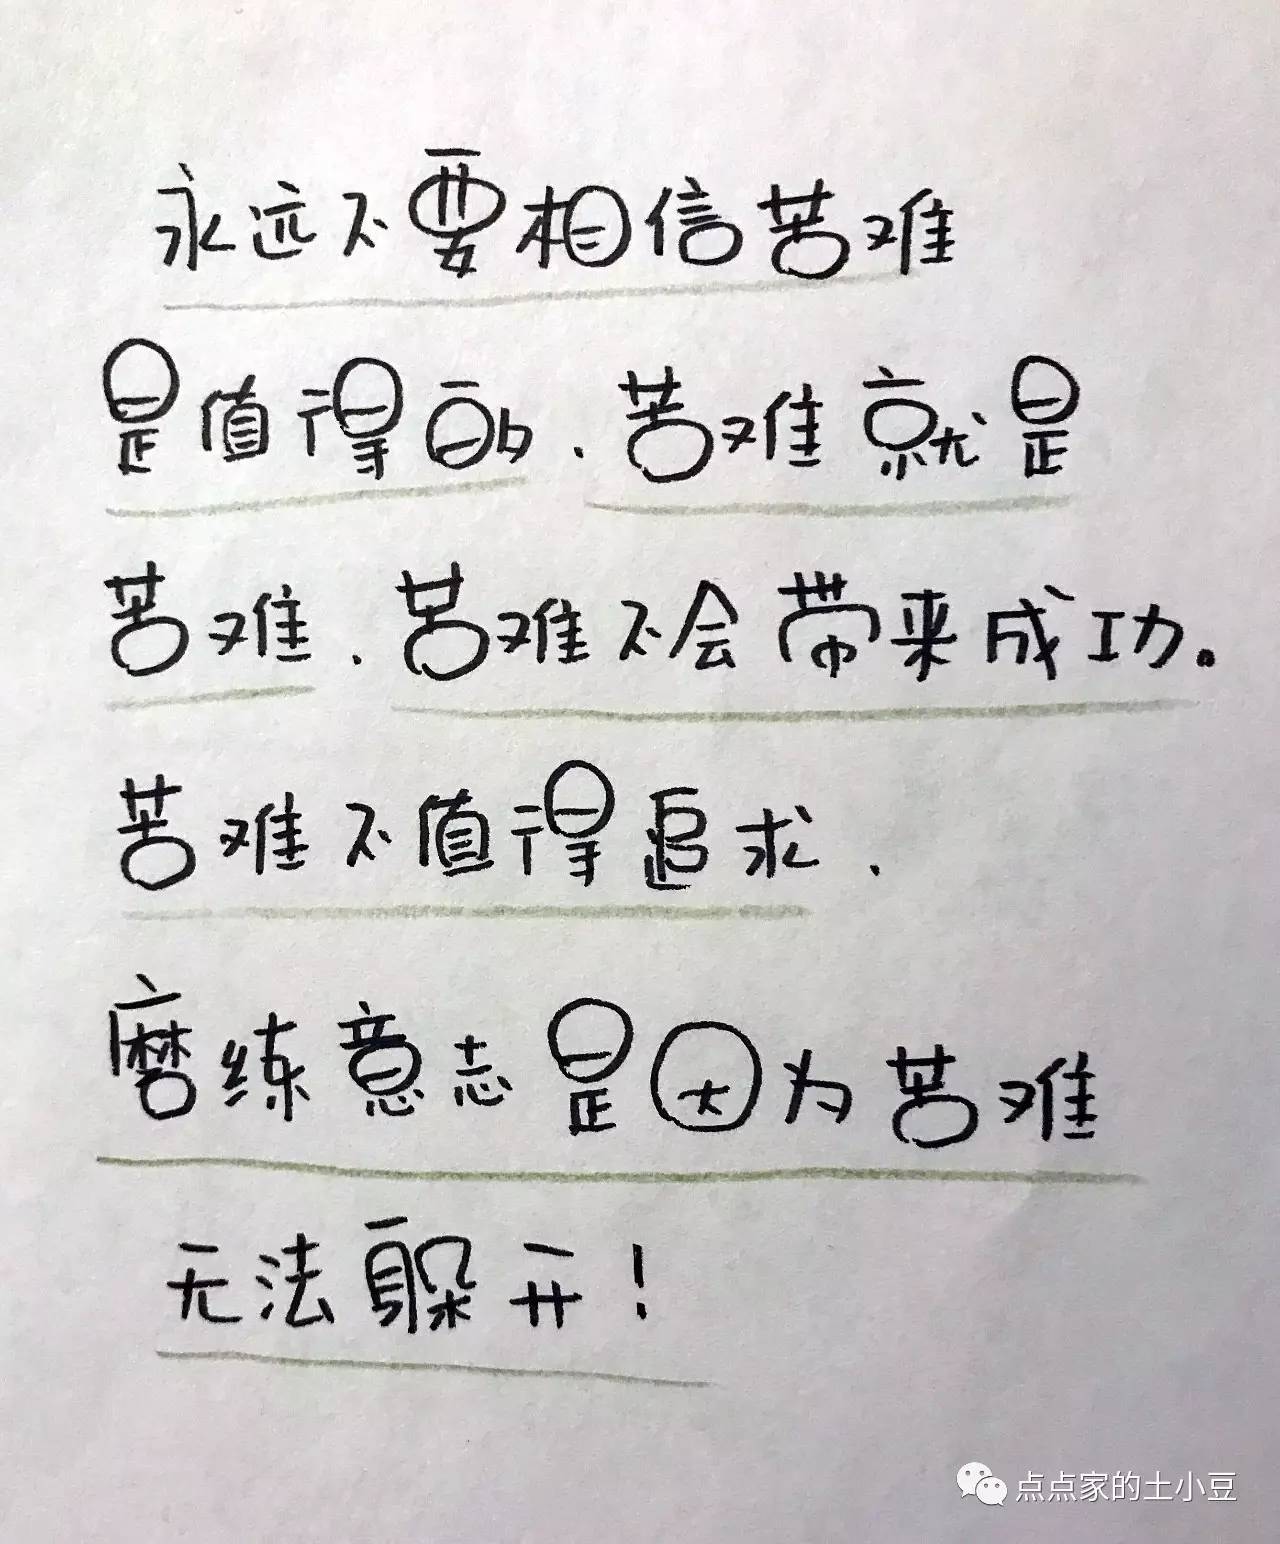 永远不要相信苦难
是值得的、苦难就是
苦难、苦难不会带来成功。
苦难不值得追求、
磨练意志是因为苦难
无法躲开！
点点家的土小豆